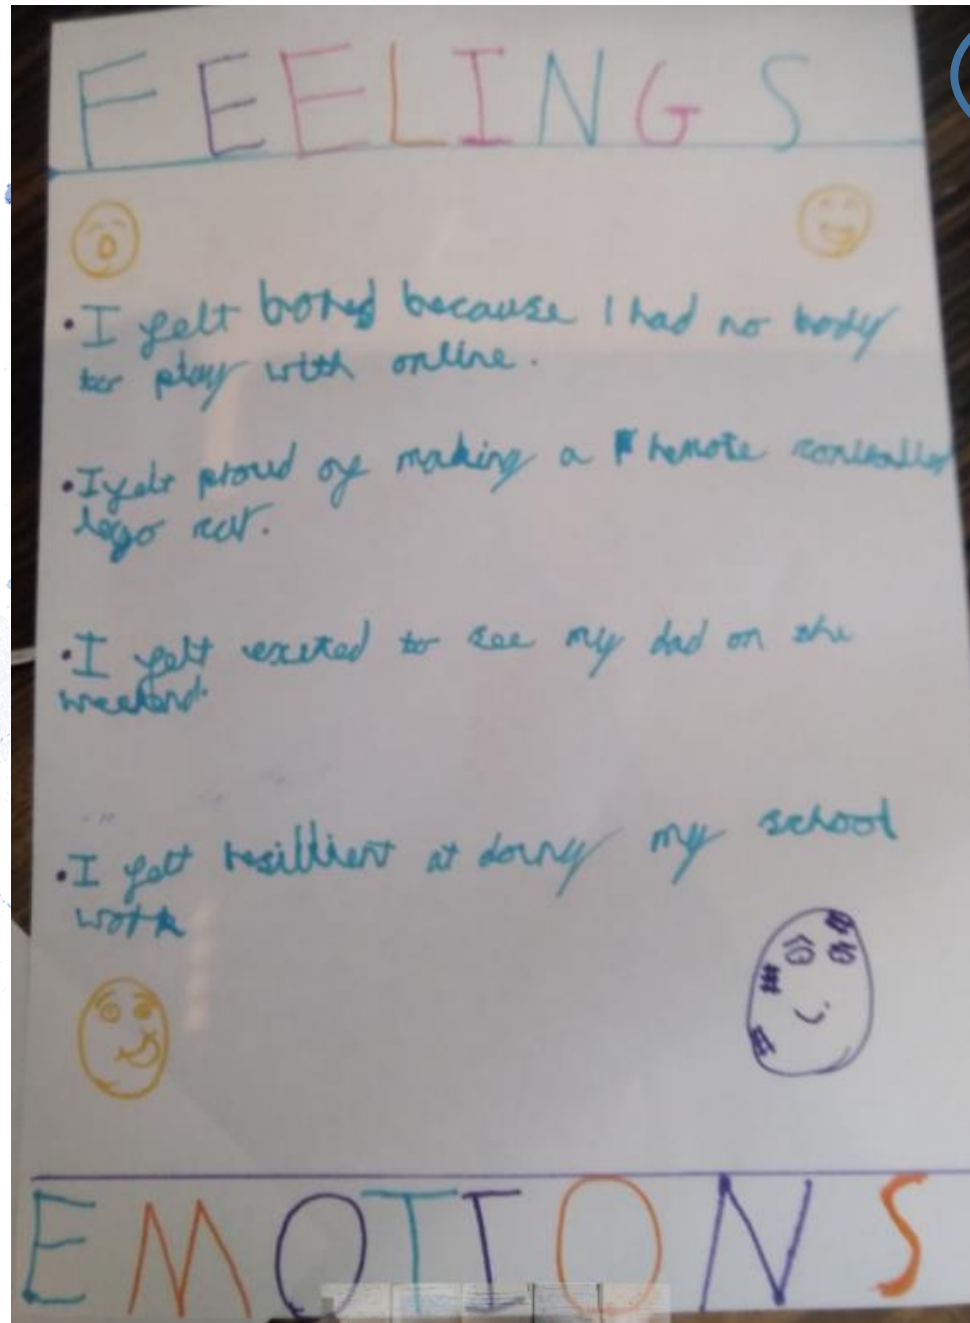 FEELINGS
• I felt bored because I had no body
to play with online.
• I felt proud of making a remote controlled
lego car.
• I felt exited to see my dad on the
weekend.
• I felt resillient at doing my school
work
EMOTIONS